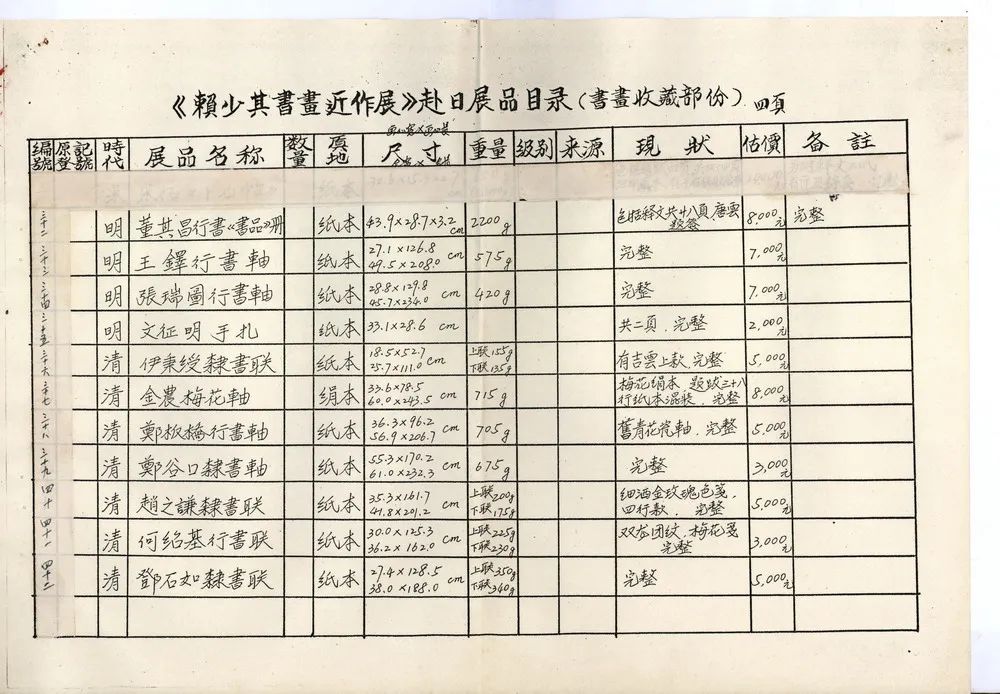 《賴少其書畫近作展》赴日展品目录(書畫收藏部份) 四頁
編號 原登記號 時代 展品名称 数量 質地 尺寸 重量 級别 来源 現狀 估價 备註
三十二 明 董其昌行書《書品》册 纸本 43.9×28.7×3.2 cm 2200g 包括释文共十八頁 唐雲題簽 8,000元 完整
三十三 明 王鐸行書軸 纸本 27.1×126.8 49.5×208.0 cm 575g 完整 7,000元
三十四 明 張瑞圖行書軸 纸本 28.8×129.8 45.7×234.0 cm 420g 完整 7,000元
三十五 明 文征明手扎 纸本 33.1×28.6 cm 共二頁.完整 2,000元
三十六 清 伊秉綬隸書联 纸本 18.5×52.7 25.7×111.0 cm 上联155g 下联135g 有吉雲上款.完整 5,000元
三十七 清 金農梅花軸 绢本 33.6×78.5 60.0×243.5 cm 715g 梅花绢本.題跋三十八行纸本混裝.完整 8,000元
三十八 清 鄭板橋行書軸 纸本 36.3×96.2 56.9×206.7 cm 705g 舊青花瓷軸.完整 5,000元
三十九 清 鄭谷口隸書軸 纸本 55.3×170.2 61.0×232.3 cm 675g 完整 3,000元
四十 清 趙之謙隸書联 纸本 35.3×161.7 41.8×201.2 cm 上联200g 下联175g 细洒金玫瑰色笺.四行款.完整 5,000元
四十一 清 何绍基行書联 纸本 30.0×125.3 36.2×162.0 cm 上联225g 下联230g 双龙团纹.梅花笺 完整 3,000元
四十二 清 鄧石如隸書联 纸本 27.4×128.5 38.0×188.0 cm 上联350g 下联340g 完整 5,000元